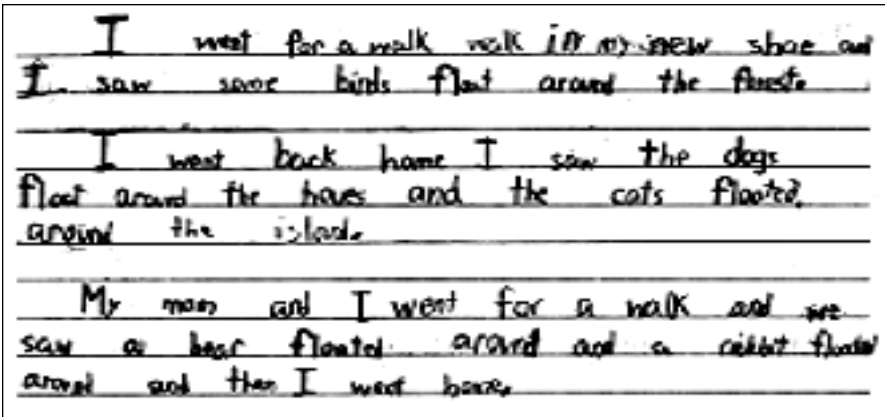 I went for a walk walk in my new shoe and
I saw some birds float around the forest.
I went back home I saw the dogs
float around the houes and the cats floated
around the island.
My mom and I went for a walk and we
saw a bear floated around and a rabbit floated
around and then I went home.